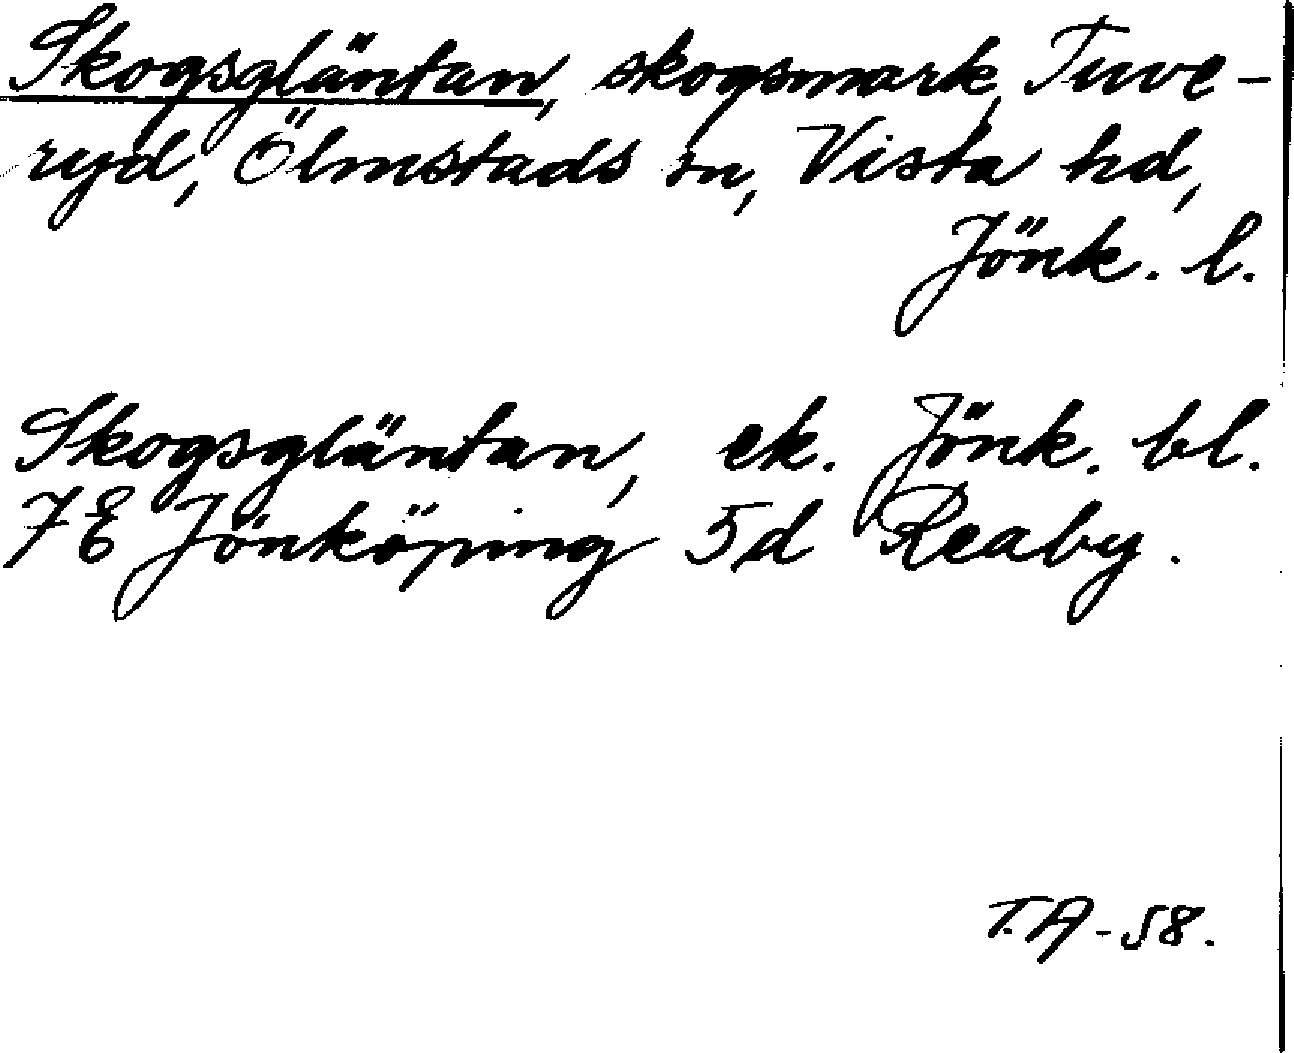 Skogsgläntan, skogsmark, Tuve-
ryd, Ölmstads sn, Vista hd,
Jönk. l.
Skogsgläntan, ek. Jönk. bl.
7E Jönköping 5d Reaby.
T.A-58.